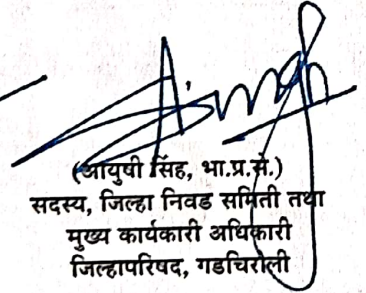 (आयुषी सिंह, भा.प्र.से.)
सदस्य, जिल्हा निवड समिती तथा
मुख्य कार्यकारी अधिकारी
जिल्हापरिषद, गडचिरोली